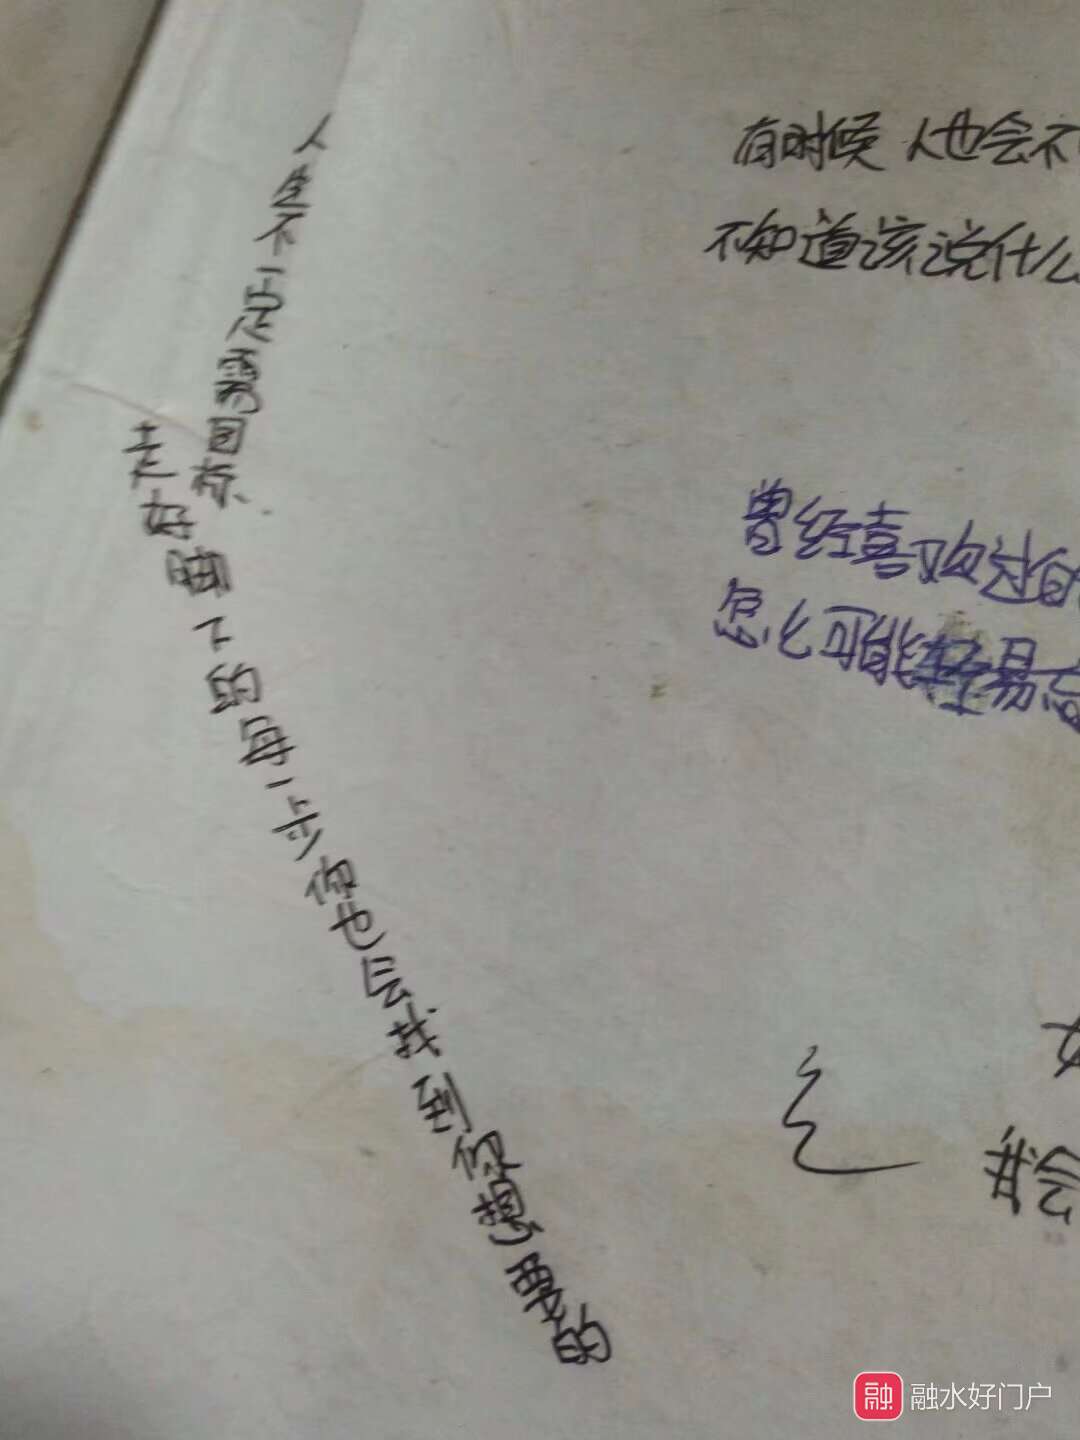 人生不一定需要回忆
走好脚下的每一步你也会找到你想要的
有时候 人也会不
不知道该说什么
曾经喜欢过的
怎么可能轻易忘
我会
融 融水好门户